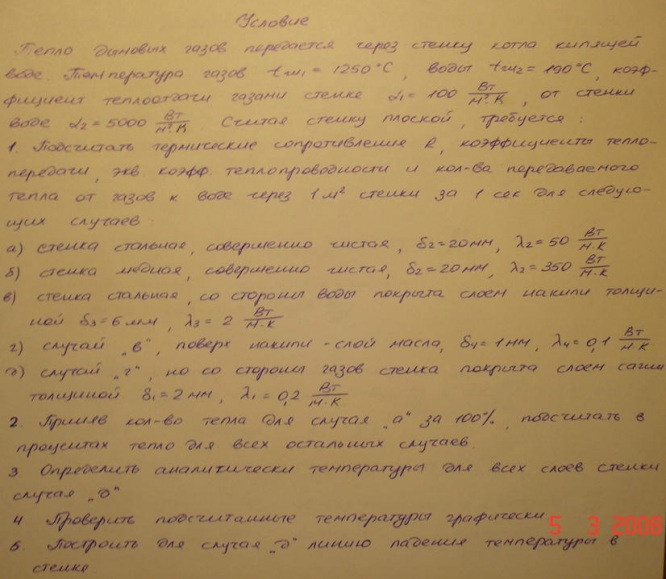 Условие
Тепло дымовых газов передается через стенку котла кипящей
воде. Температура газов tж₁ = 1250°С, воды tж₂ = 190°С, коэф-
фициент теплоотдачи газами стенке α₁ = 100 Вт/м²·К, от стенки
воде α₂ = 5000 Вт/м²·К. Считая стенку плоской, требуется:
1 Подсчитать термические сопротивления R, коэффициенты тепло-
передачи, экв. коэфф. теплопроводности и кол-ва передаваемого
тепла от газов к воде через 1 м² стенки за 1 сек для следую-
щих случаев
а) стенка стальная, совершенно чистая, δ₂ = 20 мм, λ₂ = 50 Вт/м·К
б) стенка медная, совершенно чистая, δ₂ = 20 мм, λ₂ = 350 Вт/м·К
в) стенка стальная, со стороны воды покрыта слоем накипи толщи-
ной δ₃ = 6 мм, λ₃ = 2 Вт/м·К
г) случай „в", поверх накипи - слой масла, δ₄ = 1 мм, λ₄ = 0,1 Вт/м·К
д) случай „г", но со стороны газов стенка покрыта слоем сажи
толщиной δ₁ = 2 мм, λ₁ = 0,2 Вт/м·К
2. Приняв кол-во тепла для случая „а" за 100%, подсчитать в
процентах тепло для всех остальных случаев.
3 Определить аналитически температуры для всех слоев стенки
случая „д"
4 Проверить подсчитанные температуры графически
5 Построить для случая „д" линию падения температуры в
стенке
5 3 2008